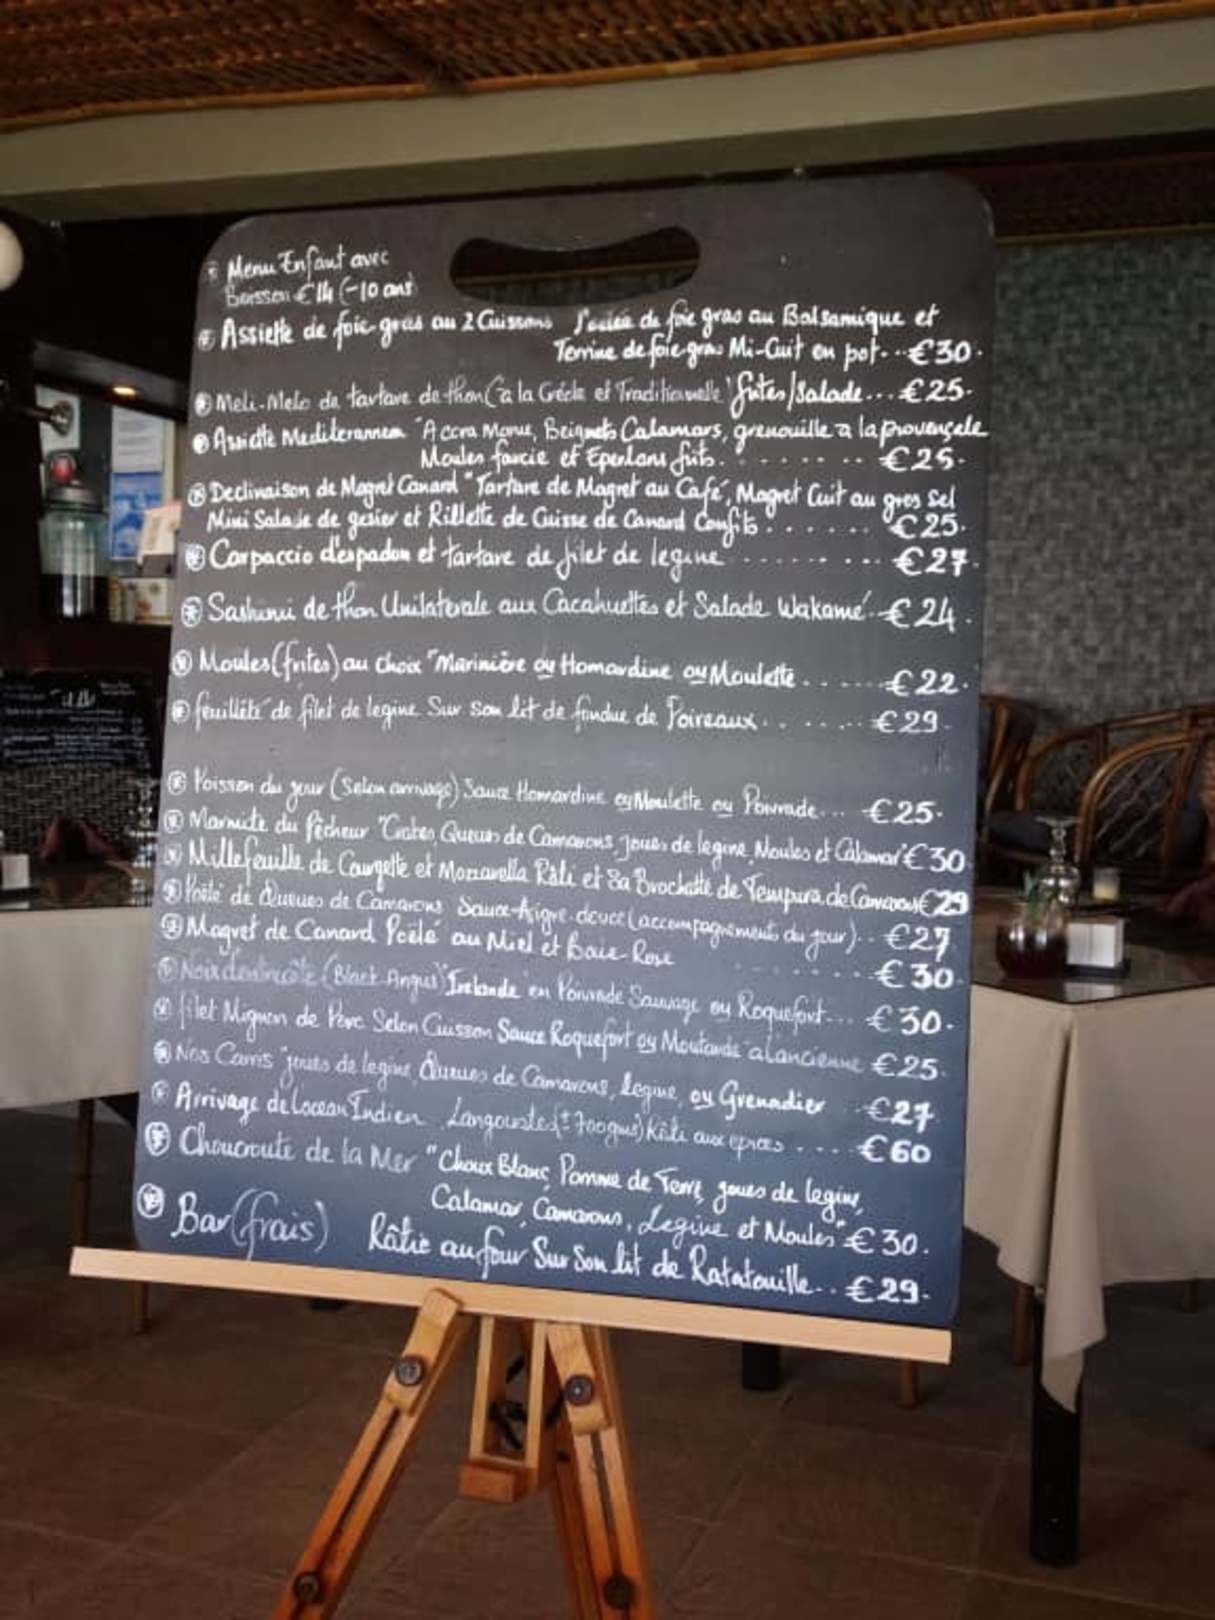 Menu Enfant avec
Boisson €14 (-10 ans)
Assiette de foie-gras au 2 Cuissons Poelée de foie gras au Balsamique et
Terrine de foie-gras Mi-Cuit en pot...€30.
Meli-Melo de tartare de thon (a la Créole et Traditionnelle) frites/Salade...€25.
Assiette Mediterannea "Accra Morue, Beignets Calamars, grenouille a la provençale
Moules farcie et Eperlans frits. ....... €25.
Declinaison de Magret Canard "Tartare de Magret au Café, Magret Cuit au gros Sel
Mini Salade de gesier et Rillette de Cuisse de Canard Confits....... €25.
Carpaccio d'espadon et tartare de filet de legine ......... €27.
Sashimi de thon Unilaterale aux Cacahuettes et Salade Wakamé. €24.
Moules (frites) au choix "Marinière ou Homardine ou Moulette....... €22.
feuilleté de filet de legine Sur son lit de fondue de Poireaux....... €29.
Poisson du jour (Selon arrivage) Sauce Homardine ou Moulette ou Poivrade... €25.
Marmite du Pêcheur "Crabes, Queues de Camarons, joues de legine, Moules et Calamar" €30
Millefeuille de Courgette et Mozzarella Rôti et Sa Brochette de Tempura de Camarons €29
Poêlé de Queues de Camarons Sauce-Aigre-douce (accompagnements du jour).. €27
Magret de Canard Poëlé au Miel et Baie-Rose ....... €30.
Noix d'entrecôte (Black Angus) "Irelande" en Poivrade Sauvage ou Roquefort... €30.
filet Mignon de Porc Selon Cuisson Sauce Roquefort ou Moutarde a l'ancienne €25.
Nos Carris "joues de legine, Queues de Camarons, legine, ou Grenadier ..€27
Arrivage de L'ocean Indien Langouste (± 700grs) Rôti aux epices.... €60
Choucroute de la Mer "Choux Blanc, Pomme de Terre, joues de legine,
Calamar, Camarons, Legine et Moules" €30.
Bar (frais) Rôtie au four Sur Son lit de Ratatouille.. €29.